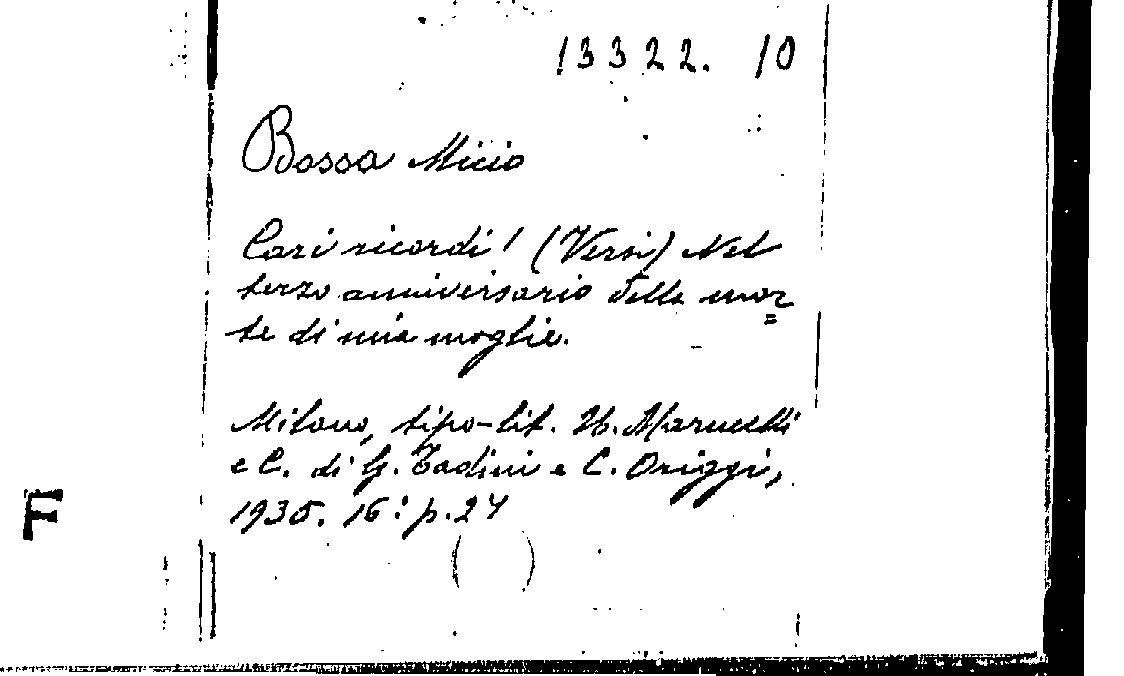 13322. 10
Bossa Micio
Cari ricordi! (Versi) Nel
terzo anniversario della mor=
te di mia moglie.
Milano, tipo-lit. H. Marucelli
e C. di G. Tadini e C. Origgi,
1935. 16º p. 24
( )
F